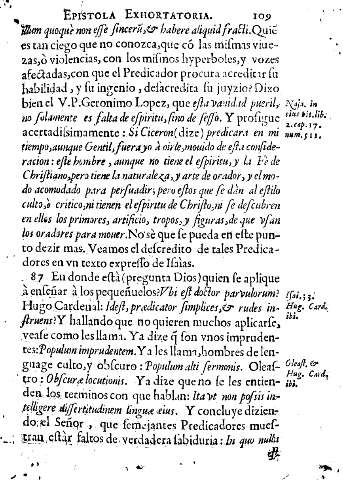 EPISTOLA EXHORTATORIA. 109
illam quoque non esse sincerũ, & habere aliquid fracti. Quiẽ
es tan ciego que no conozca, que cõ las mismas viue-
zas, ò violencias, con los mismos hyperboles, y vozes
afectadas, con que el Predicador procura acreditar su
habilidad, y su ingenio, desacredita su juyzio? Dizo
bien el V. P. Geronimo Lopez, que esta vanidad pueril,
no solamente es falta de espiritu, sino de sesso. Y prosigue
acertadissimamente: Si Ciceron (dize) predicara en mi
tiempo, aunque Gentil, fuera yo à oirle, mouido de esta conside-
racion: este hombre, aunque no tiene el espiritu, y la Fè de
Christiano, pero tiene la naturaleza, y arte de orador, y el mo-
do acomodado para persuadir; pero estos que se dàn al estilo
culto, ò critico, ni tienen el espiritu de Christo, ni se descubren
en ellos los primores, artificio, tropos, y figuras, de que vsan
los oradores para mouer. No sè que se pueda en este pun-
to dezir mas. Veamos el descredito de tales Predica-
dores en vn texto expresso de Isaìas.
87 En donde està (pregunta Dios) quien se aplique
à enseñar à los pequeñuelos? Vbi est doctor parvulorum?
Hugo Cardenal: Idest, prædicator simplices, & rudes in-
struens? Y hallando que no quieren muchos aplicarse,
vease como les llama. Ya dize q̃ son vnos impruden-
tes: Populum imprudentem. Ya les llama, hombres de len-
guage culto, y obscuro: Populum alti sermonis. Oleas-
tro: Obscuræ locutionis. Ya dize que no se les entien-
den los terminos con que hablan: Ita vt non possis in-
telligere dissertitudinem linguæ eius. Y concluye dizien-
do el Señor, que semejantes Predicadores mues-
tran estàr faltos de verdadera sabiduria: In quo nulla
est
Naja. in
eius vit. lib.
2. cap. 17.
num. 511.
Isai. 33.
Hug. Card.
ibi.
Oleast. &
Hug. Card.
ibi.